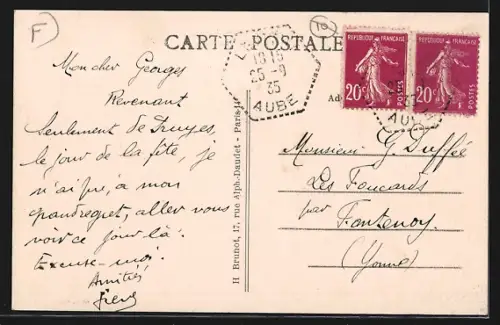 F
10
CARTE POSTALE
18 15
25 - 8
35
AUBE
REPUBLIQUE FRANÇAISE
20c
POSTES
REPUBLIQUE FRANÇAISE
20c
POSTES
Mon cher Georges
Revenant
Seulement de Druyes,
le jour de la fête, je
n'ai pu, à mon
grand regret, aller vous
voir ce jour là.
Excuse-moi.
Amitiés
H Brunot, 17, rue Alph.-Daudet - Paris
Monsieur G. Duffée
Les Foucards
par Fontenoy
(Yonne)